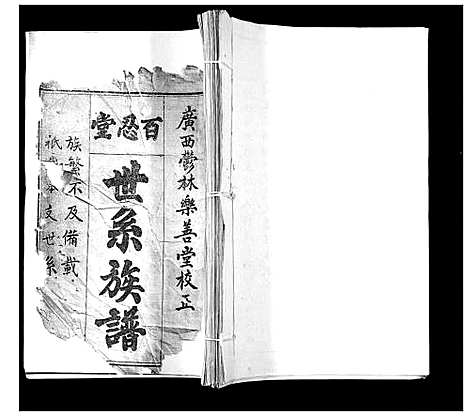 廣西鬱林樂善堂校正
百忍堂
世系族譜
族繁不及備載
祇 本支世系